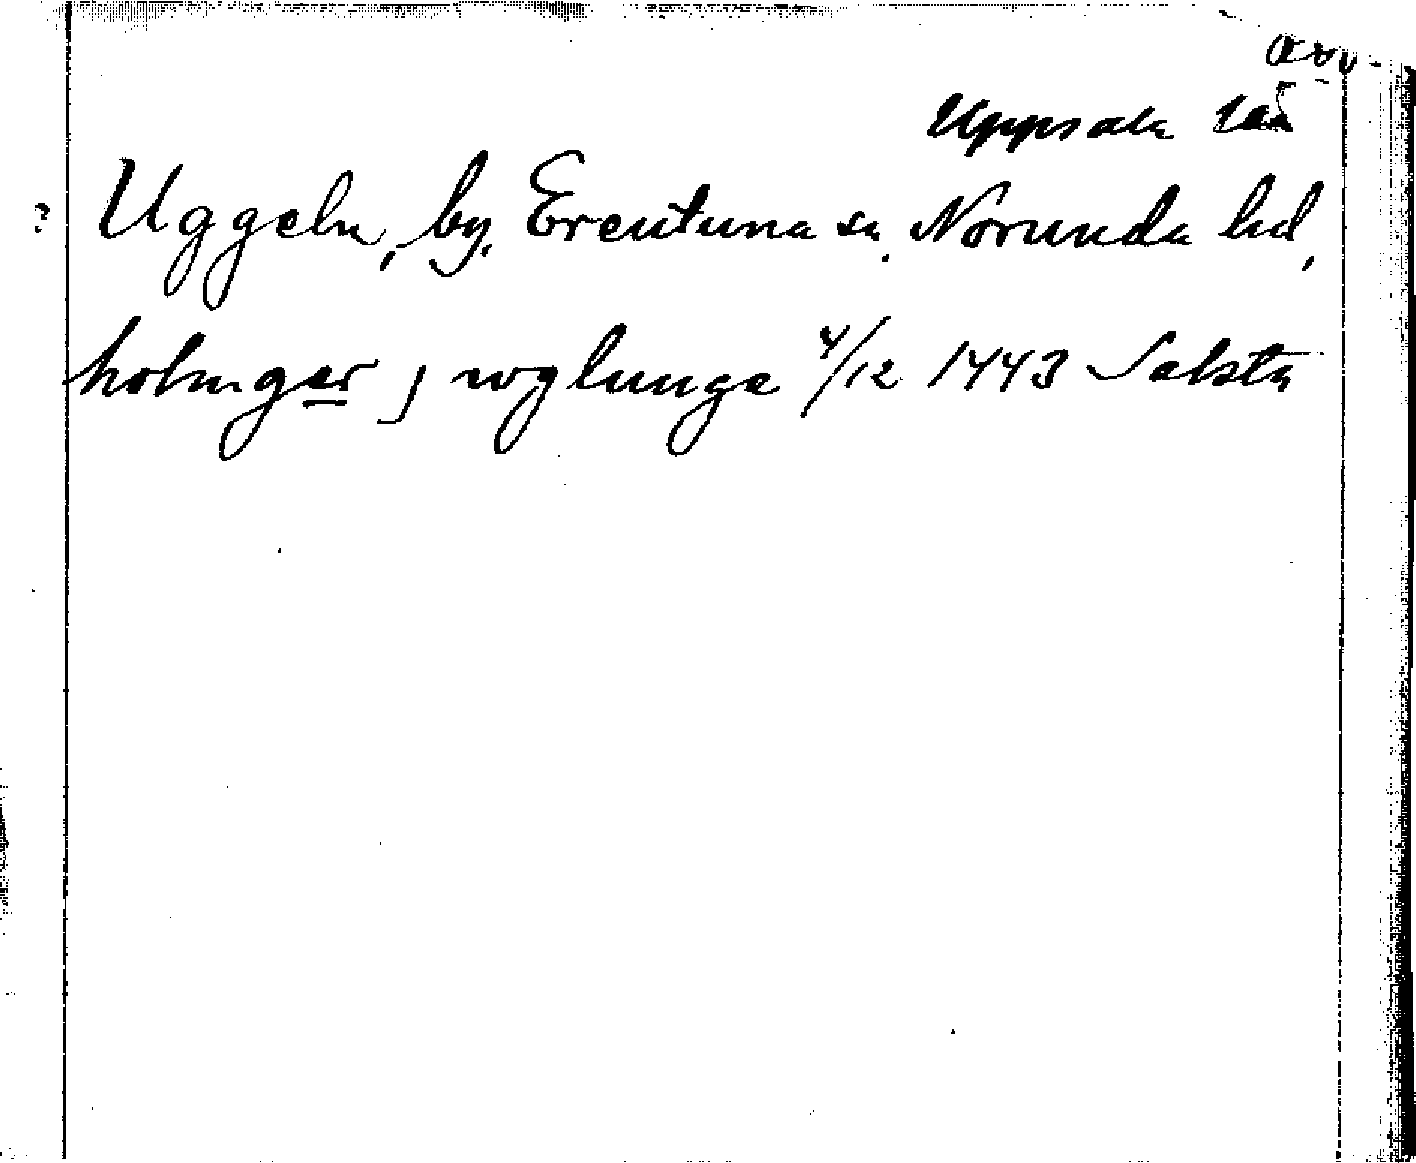 Uppsala län
? Uggeln, by, Ärentuna sn, Norunda hd,
holmger j wglunge 4/12 1443 Salsta